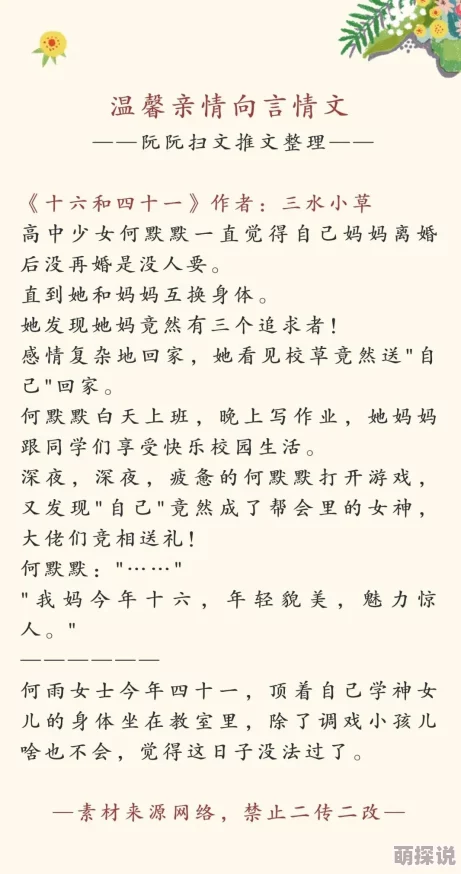 温馨亲情向言情文
——阮阮扫文推文整理——
《十六和四十一》作者：三水小草
高中少女何默默一直觉得自己妈妈离婚
后没再婚是没人要。
直到她和妈妈互换身体。
她发现她妈竟然有三个追求者！
感情复杂地回家，她看见校草竟然送"自
己"回家。
何默默白天上班，晚上写作业，她妈妈
跟同学们享受快乐校园生活。
深夜，深夜，疲惫的何默默打开游戏，
又发现"自己"竟然成了帮会里的女神，
大佬们竞相送礼！
何默默："……"
"我妈今年十六，年轻貌美，魅力惊
人。"
——————
何雨女士今年四十一，顶着自己学神女
儿的身体坐在教室里，除了调戏小孩儿
啥也不会，觉得这日子没法过了。
—素材来源网络，禁止二传二改—
萌探说